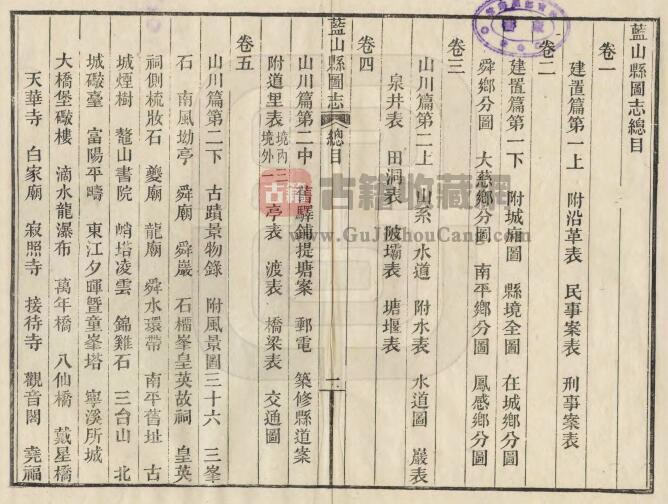 藍山縣圖志總目
卷一
建置篇第一上 附沿革表 民事案表 刑事案表
卷二
建置篇第一下 附城廂圖 縣境全圖 在城鄉分圖
舜鄉分圖 大慈鄉分圖 南平鄉分圖 鳳感鄉分圖
卷三
山川篇第二上 山系 水道 附水表 水道圖 巖表
泉井表 田洞表 陂壩表 塘堰表
藍山縣圖志 總目 一
卷四
山川篇第二中 舊驛鋪提塘案 郵電 築修縣道案
附道里表境內三境外一 亭表 渡表 橋梁表 交通圖
卷五
山川篇第二下 古蹟景物錄 附風景圖三十六 三峯
石 南風坳亭 舜廟 舜巖 石櫺峯皇英故祠 皇英
祠側梳妝石 夔廟 龍廟 舜水環帶 南平舊址 古
城煙樹 鼇山書院 峭塔凌雲 錦雞石 三台山 北
城礮臺 富陽平疇 東江夕暉暨童峯塔 寧溪所城
大橋堡礮樓 滴水龍瀑布 萬年橋 八仙橋 戴星橋
天華寺 白家廟 寂照寺 接待寺 觀音閣 堯福
古籍
古籍收藏網
www.GuJiShouCang.com